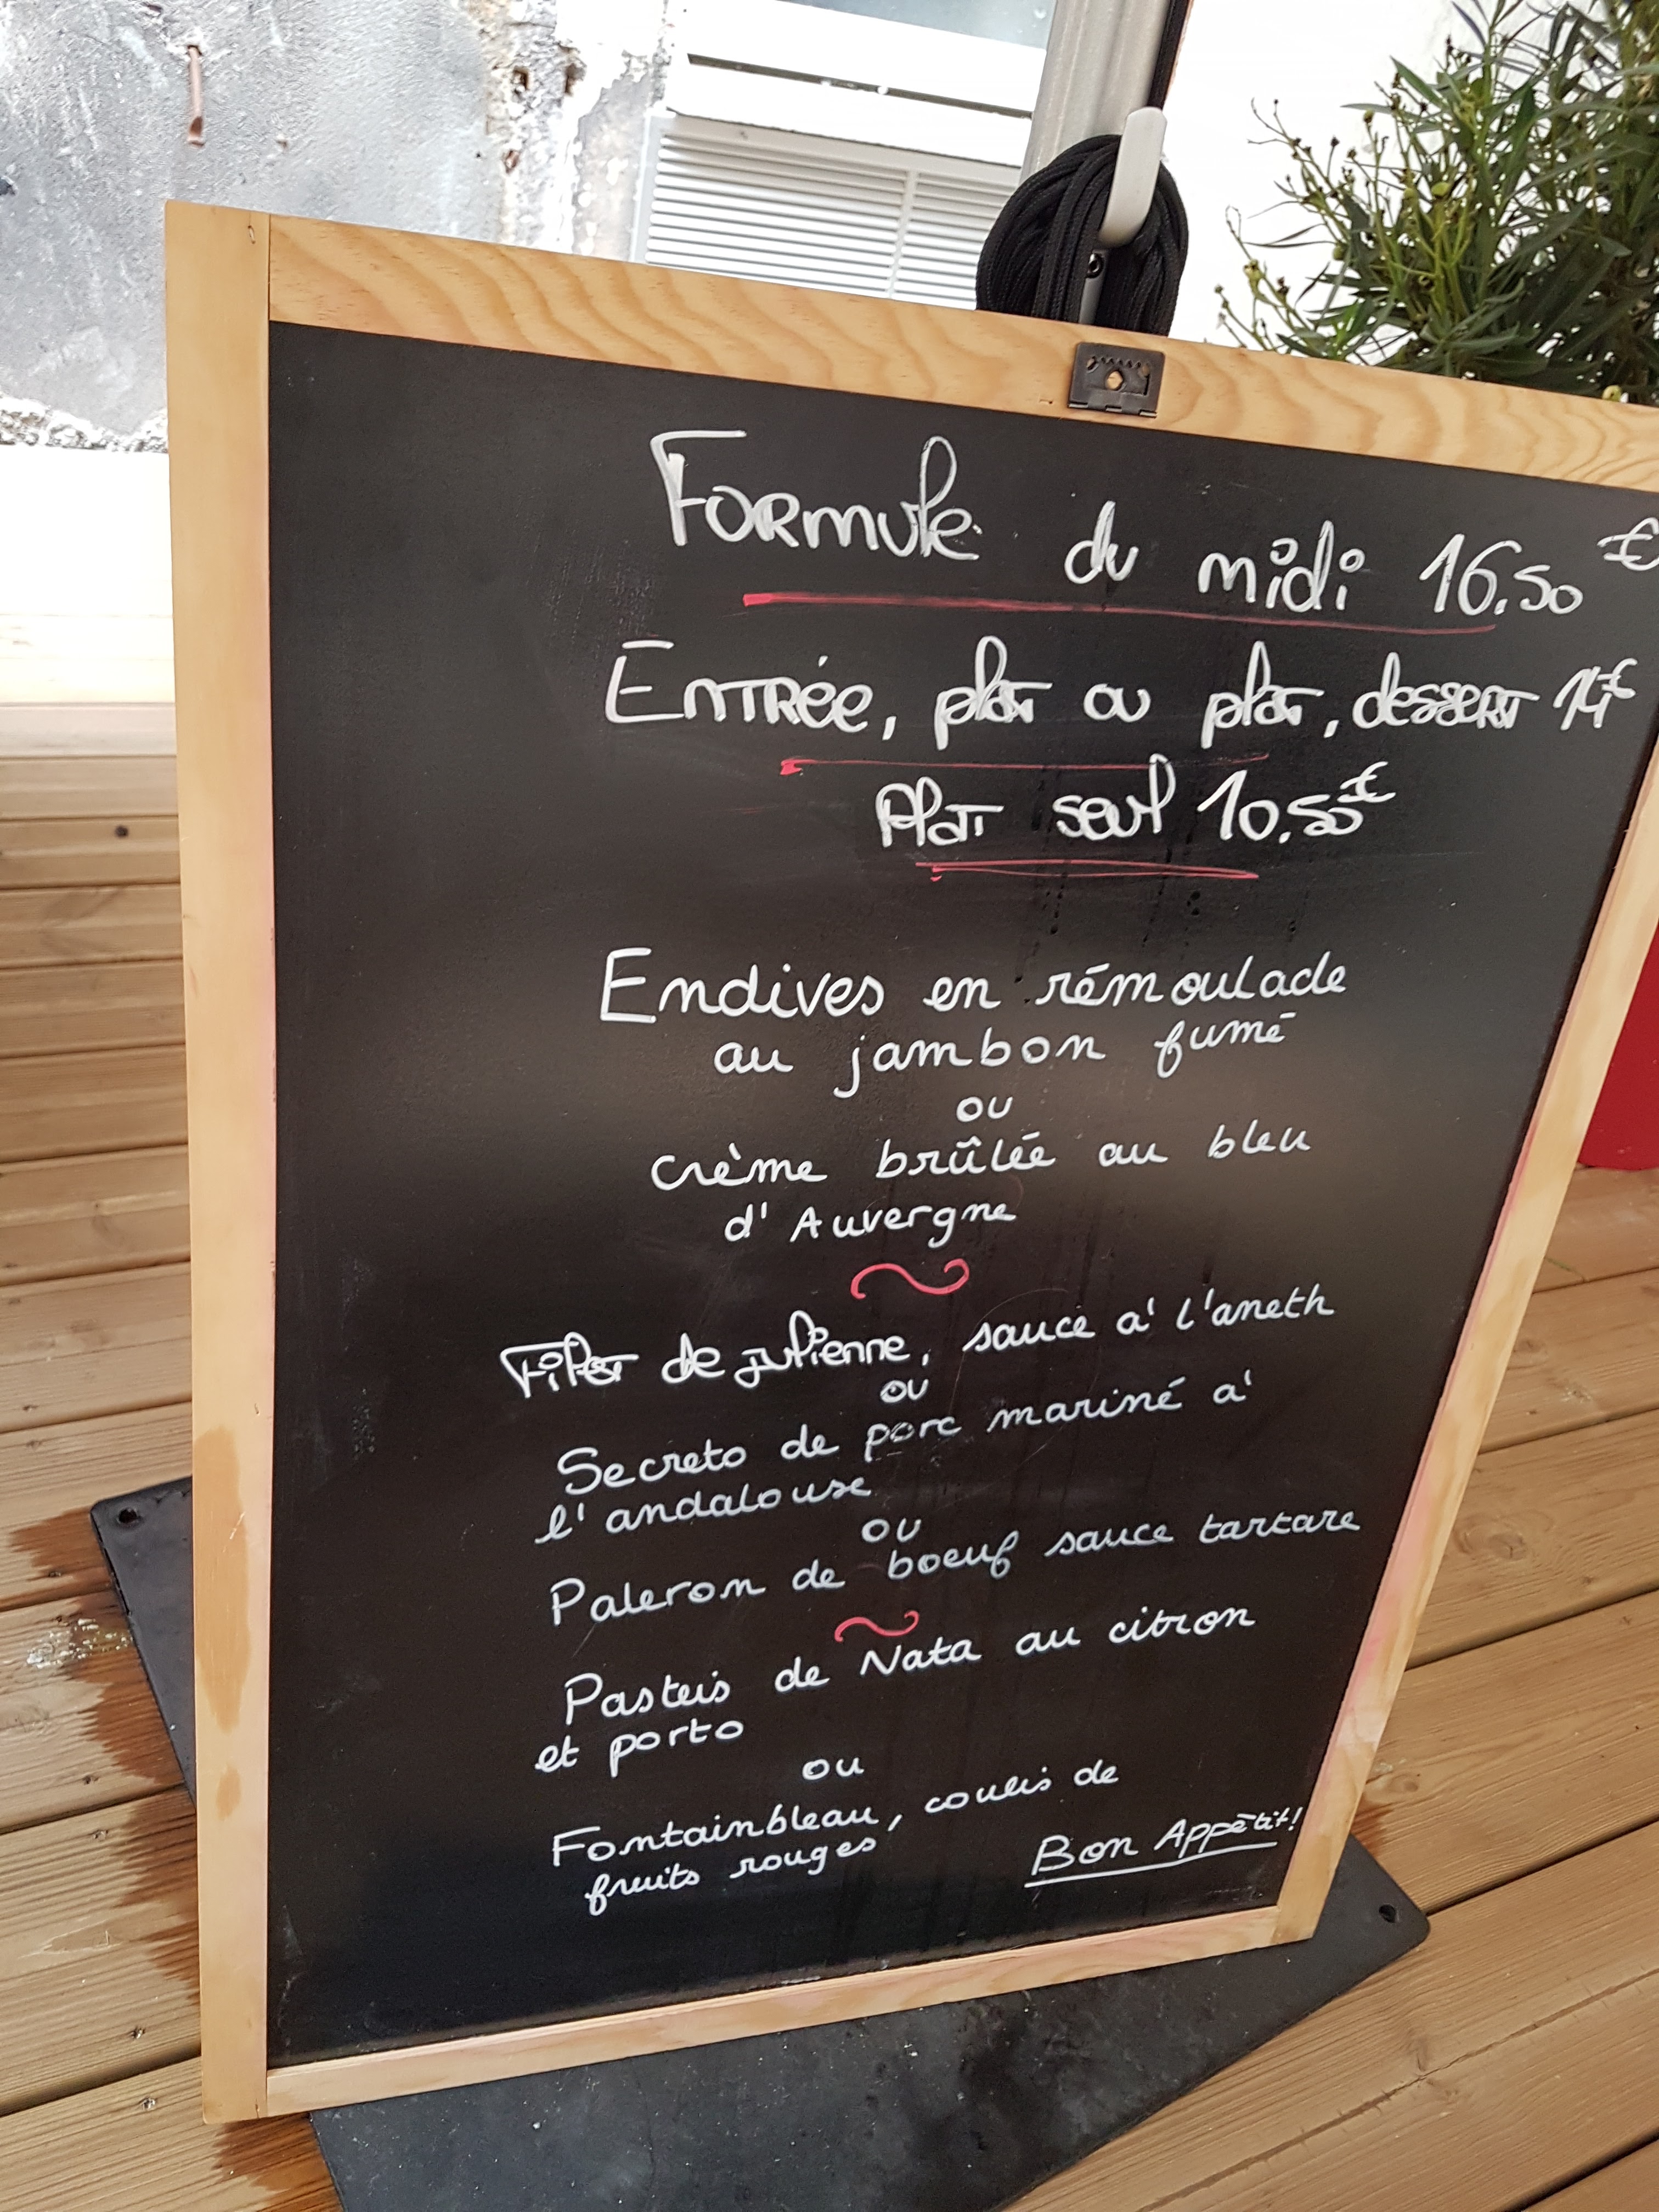 Formule du midi 16.50 €
Entrée, plat ou plat, dessert 14€
Plat seul 10.50€
Endives en rémoulade
au jambon fumé
ou
crème brûlée au bleu
d'Auvergne
Filet de julienne, sauce à l'aneth
ou
Secreto de porc mariné à
l'andalouse
ou
Paleron de boeuf sauce tartare
Pasteis de Nata au citron
et porto
ou
Fontainbleau, coulis de
fruits rouges
Bon Appétit!